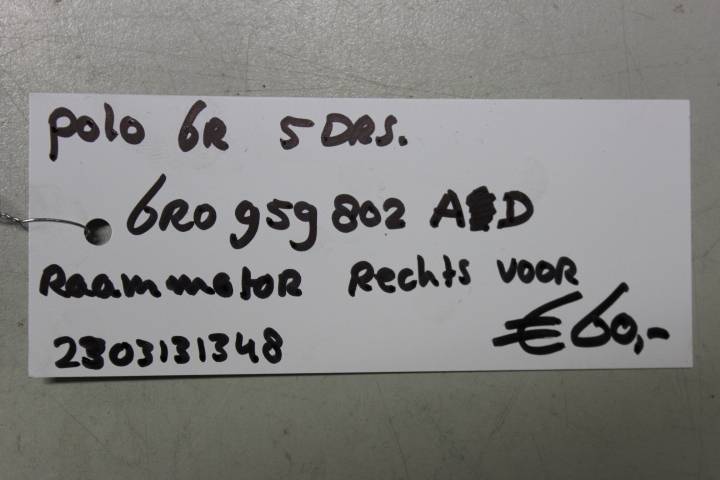 polo 6R 5 DRS.
6R0 959 802 A D
Raammotor Rechts voor
2303131348 €60,-